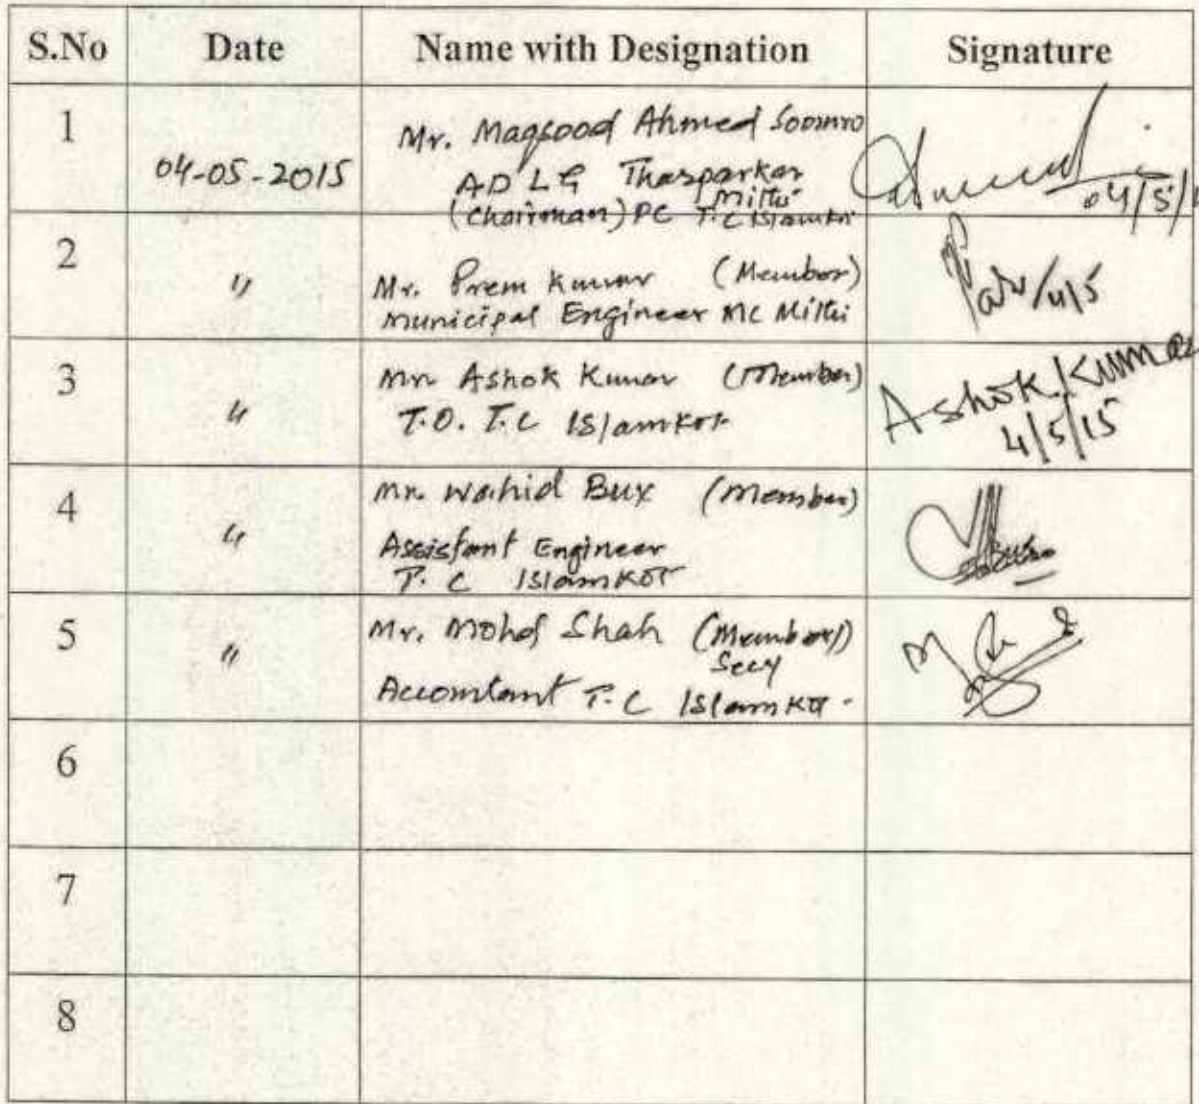 S.No Date Name with Designation Signature
1 04-05-2015 Mr. Maqsood Ahmed Soomro
AD LG Tharparkar
Mithi
(Chairman) PC T.C Islamkot
04/5/
2 " Mr. Prem Kumar (Member)
Municipal Engineer MC Mithi
3 " Mr. Ashok Kumar (Member)
T.O. T.C Islamkot
Ashok Kumar
4/5/15
4 " Mr. Wahid Bux (Member)
Assistant Engineer
T.C Islamkot
5 " Mr. Mohd Shah (Member/)
Secy
Accountant T.C Islamkot.
6
7
8